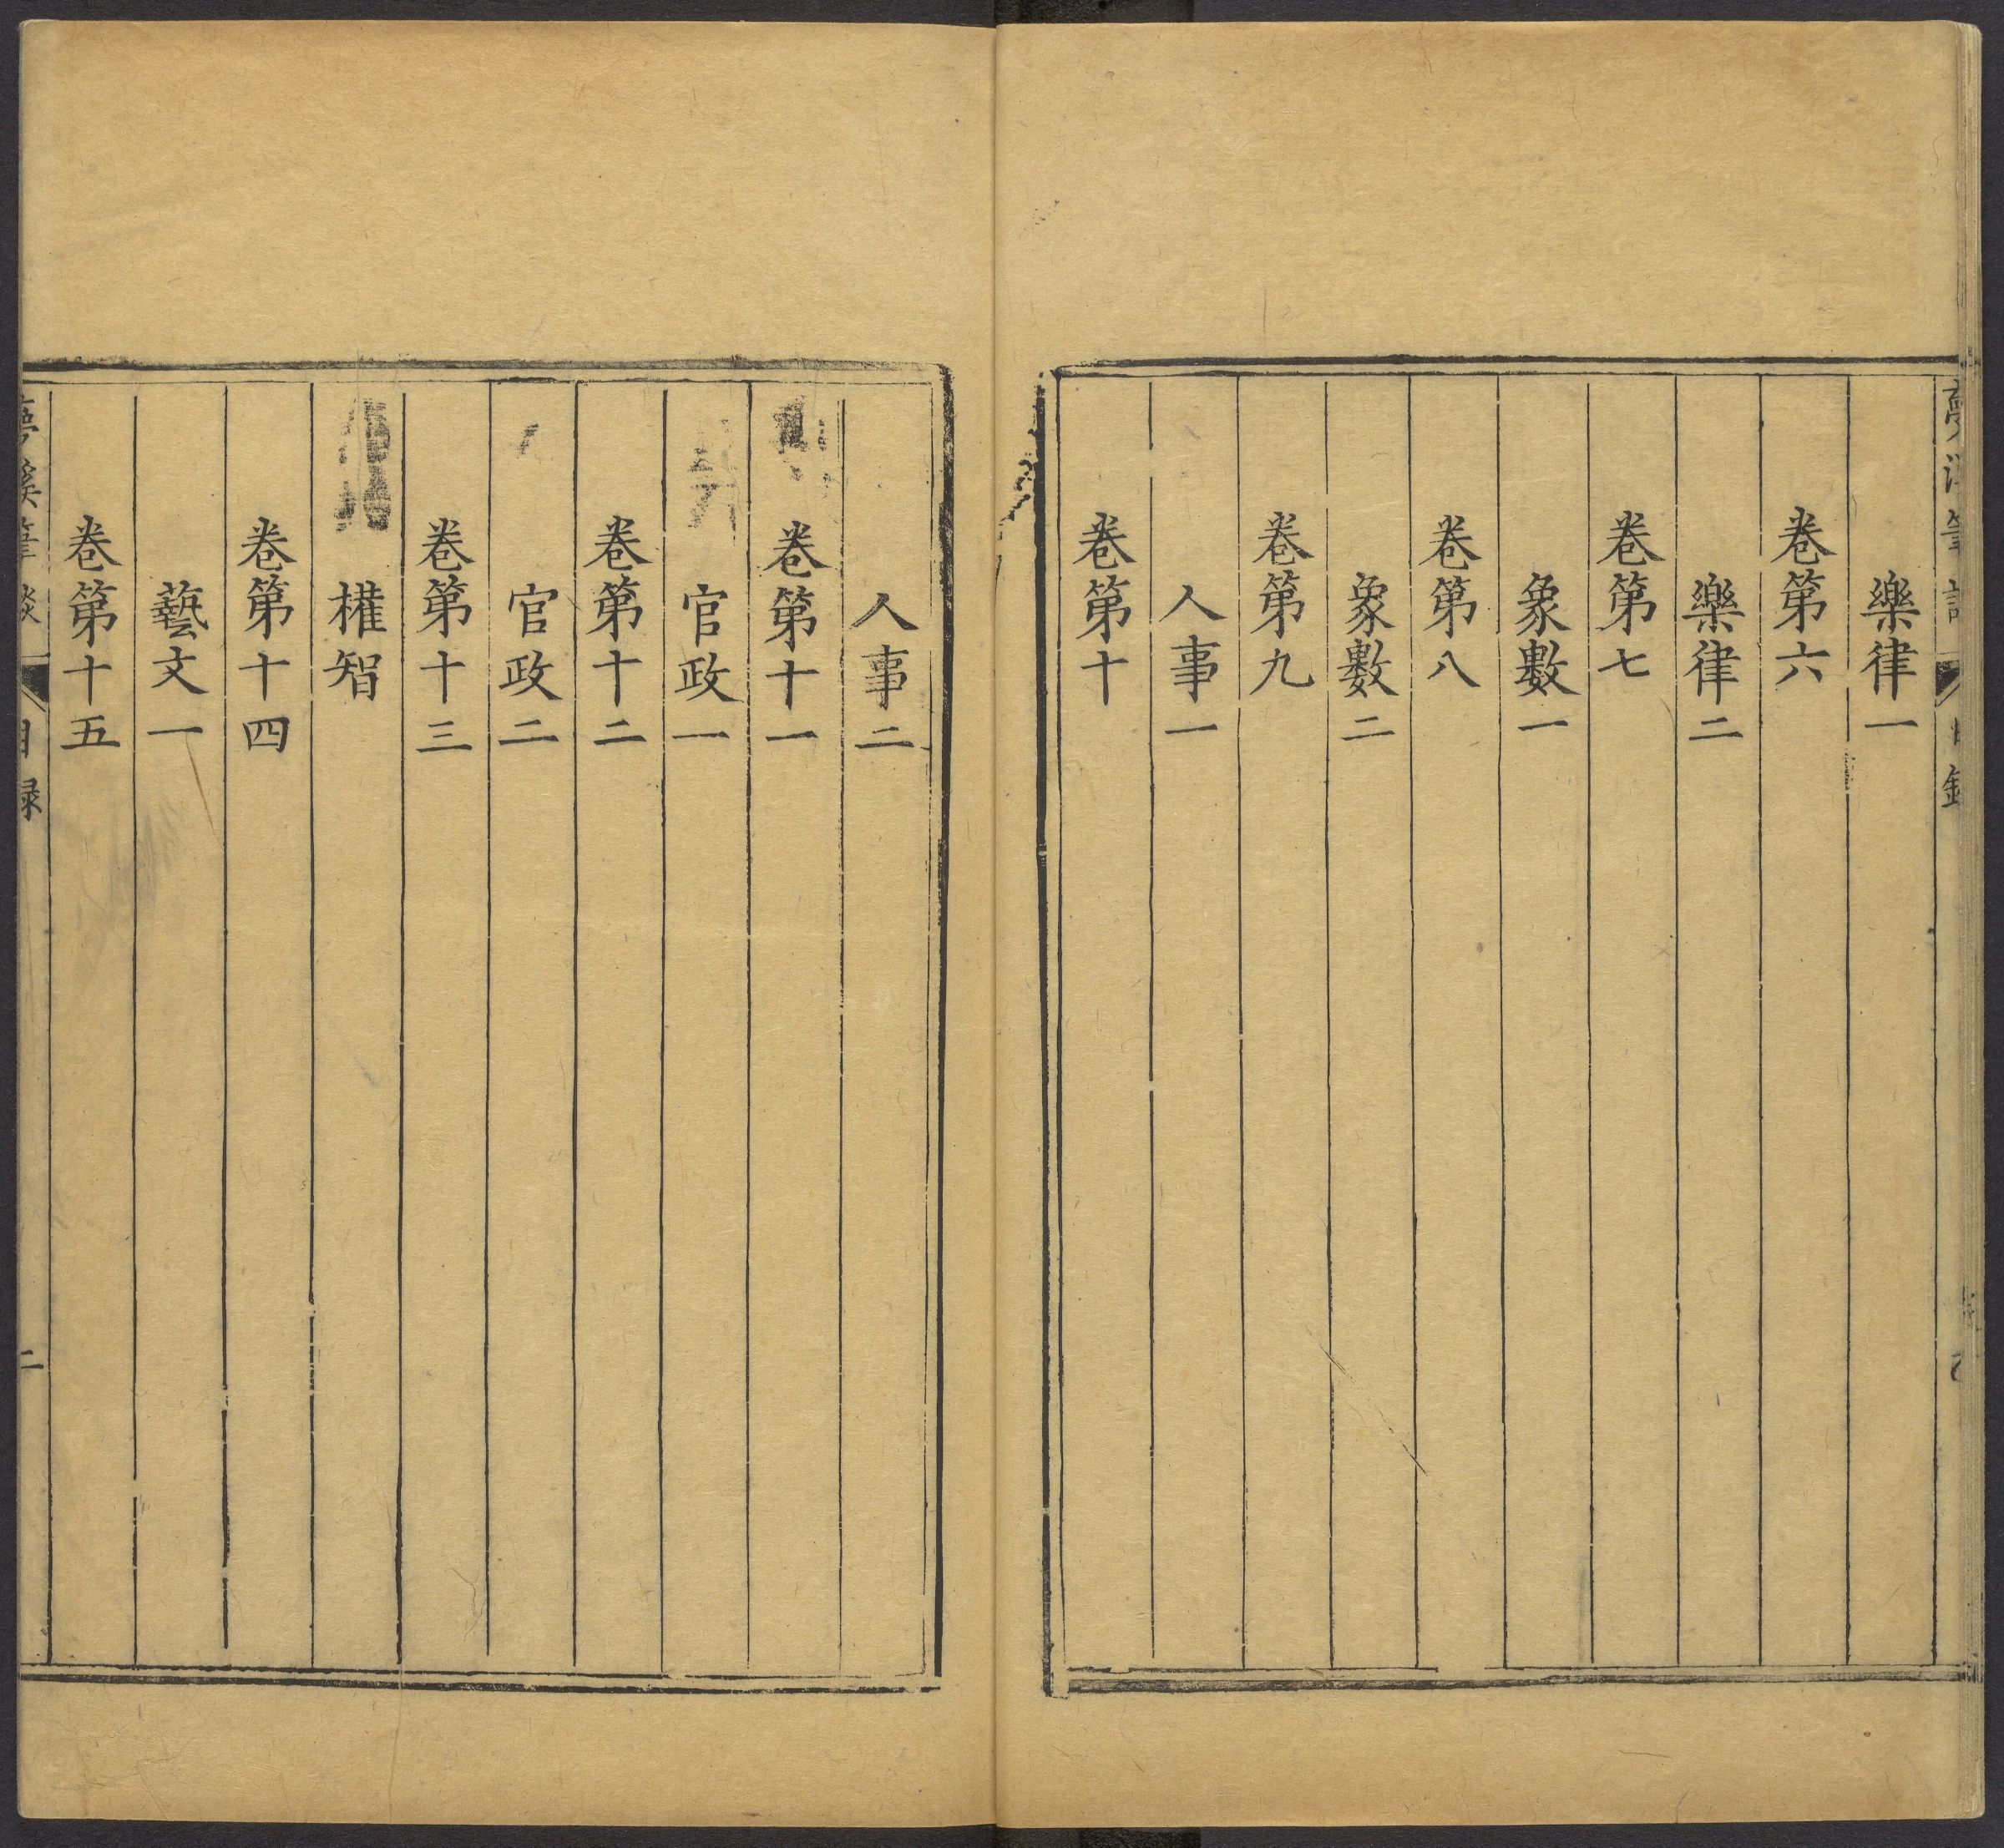 樂律一
卷第六
樂律二
卷第七
象數一
卷第八
象數二
卷第九
人事一
卷第十
人事二
卷第十一
官政一
卷第十二
官政二
卷第十三
權智
卷第十四
藝文一
卷第十五
夢溪筆談
目録
二